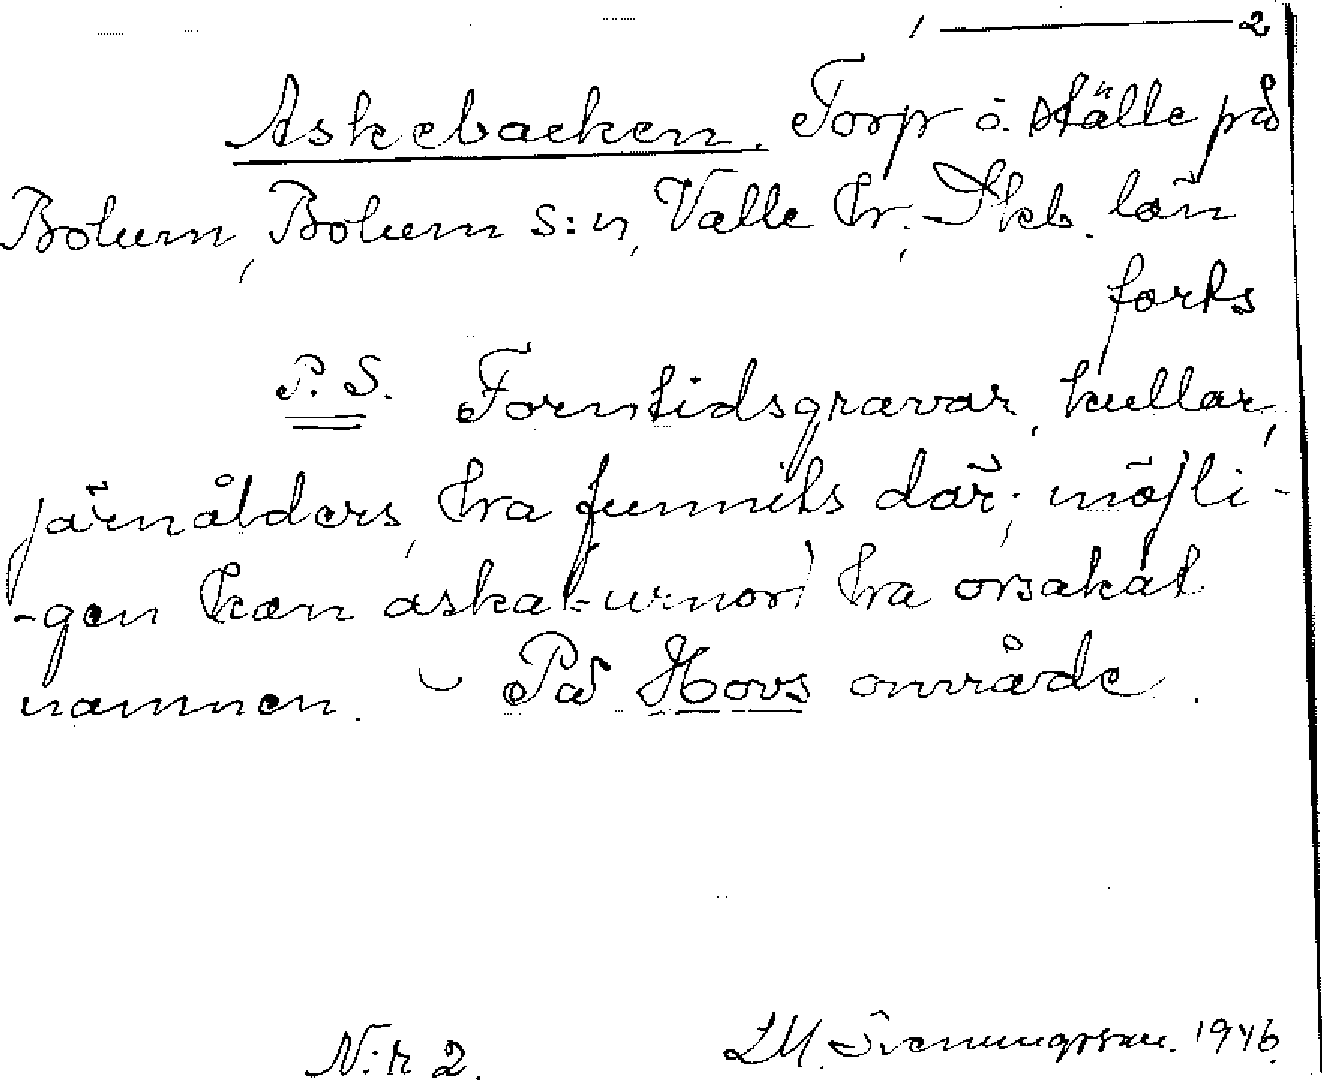 1 ——— 2
Askebacken. Torp o. ställe på
Bolum, Bolum s:n, Valle hr. Skb. län
forts
P.S. Forntidsgravar, kullar,
järnålders, ha funnits där; möjli-
-gen kan aska-urnor ha orsakat
namnen. – På Hovs område.
N:r 2. LM. Svenungsson. 1946.